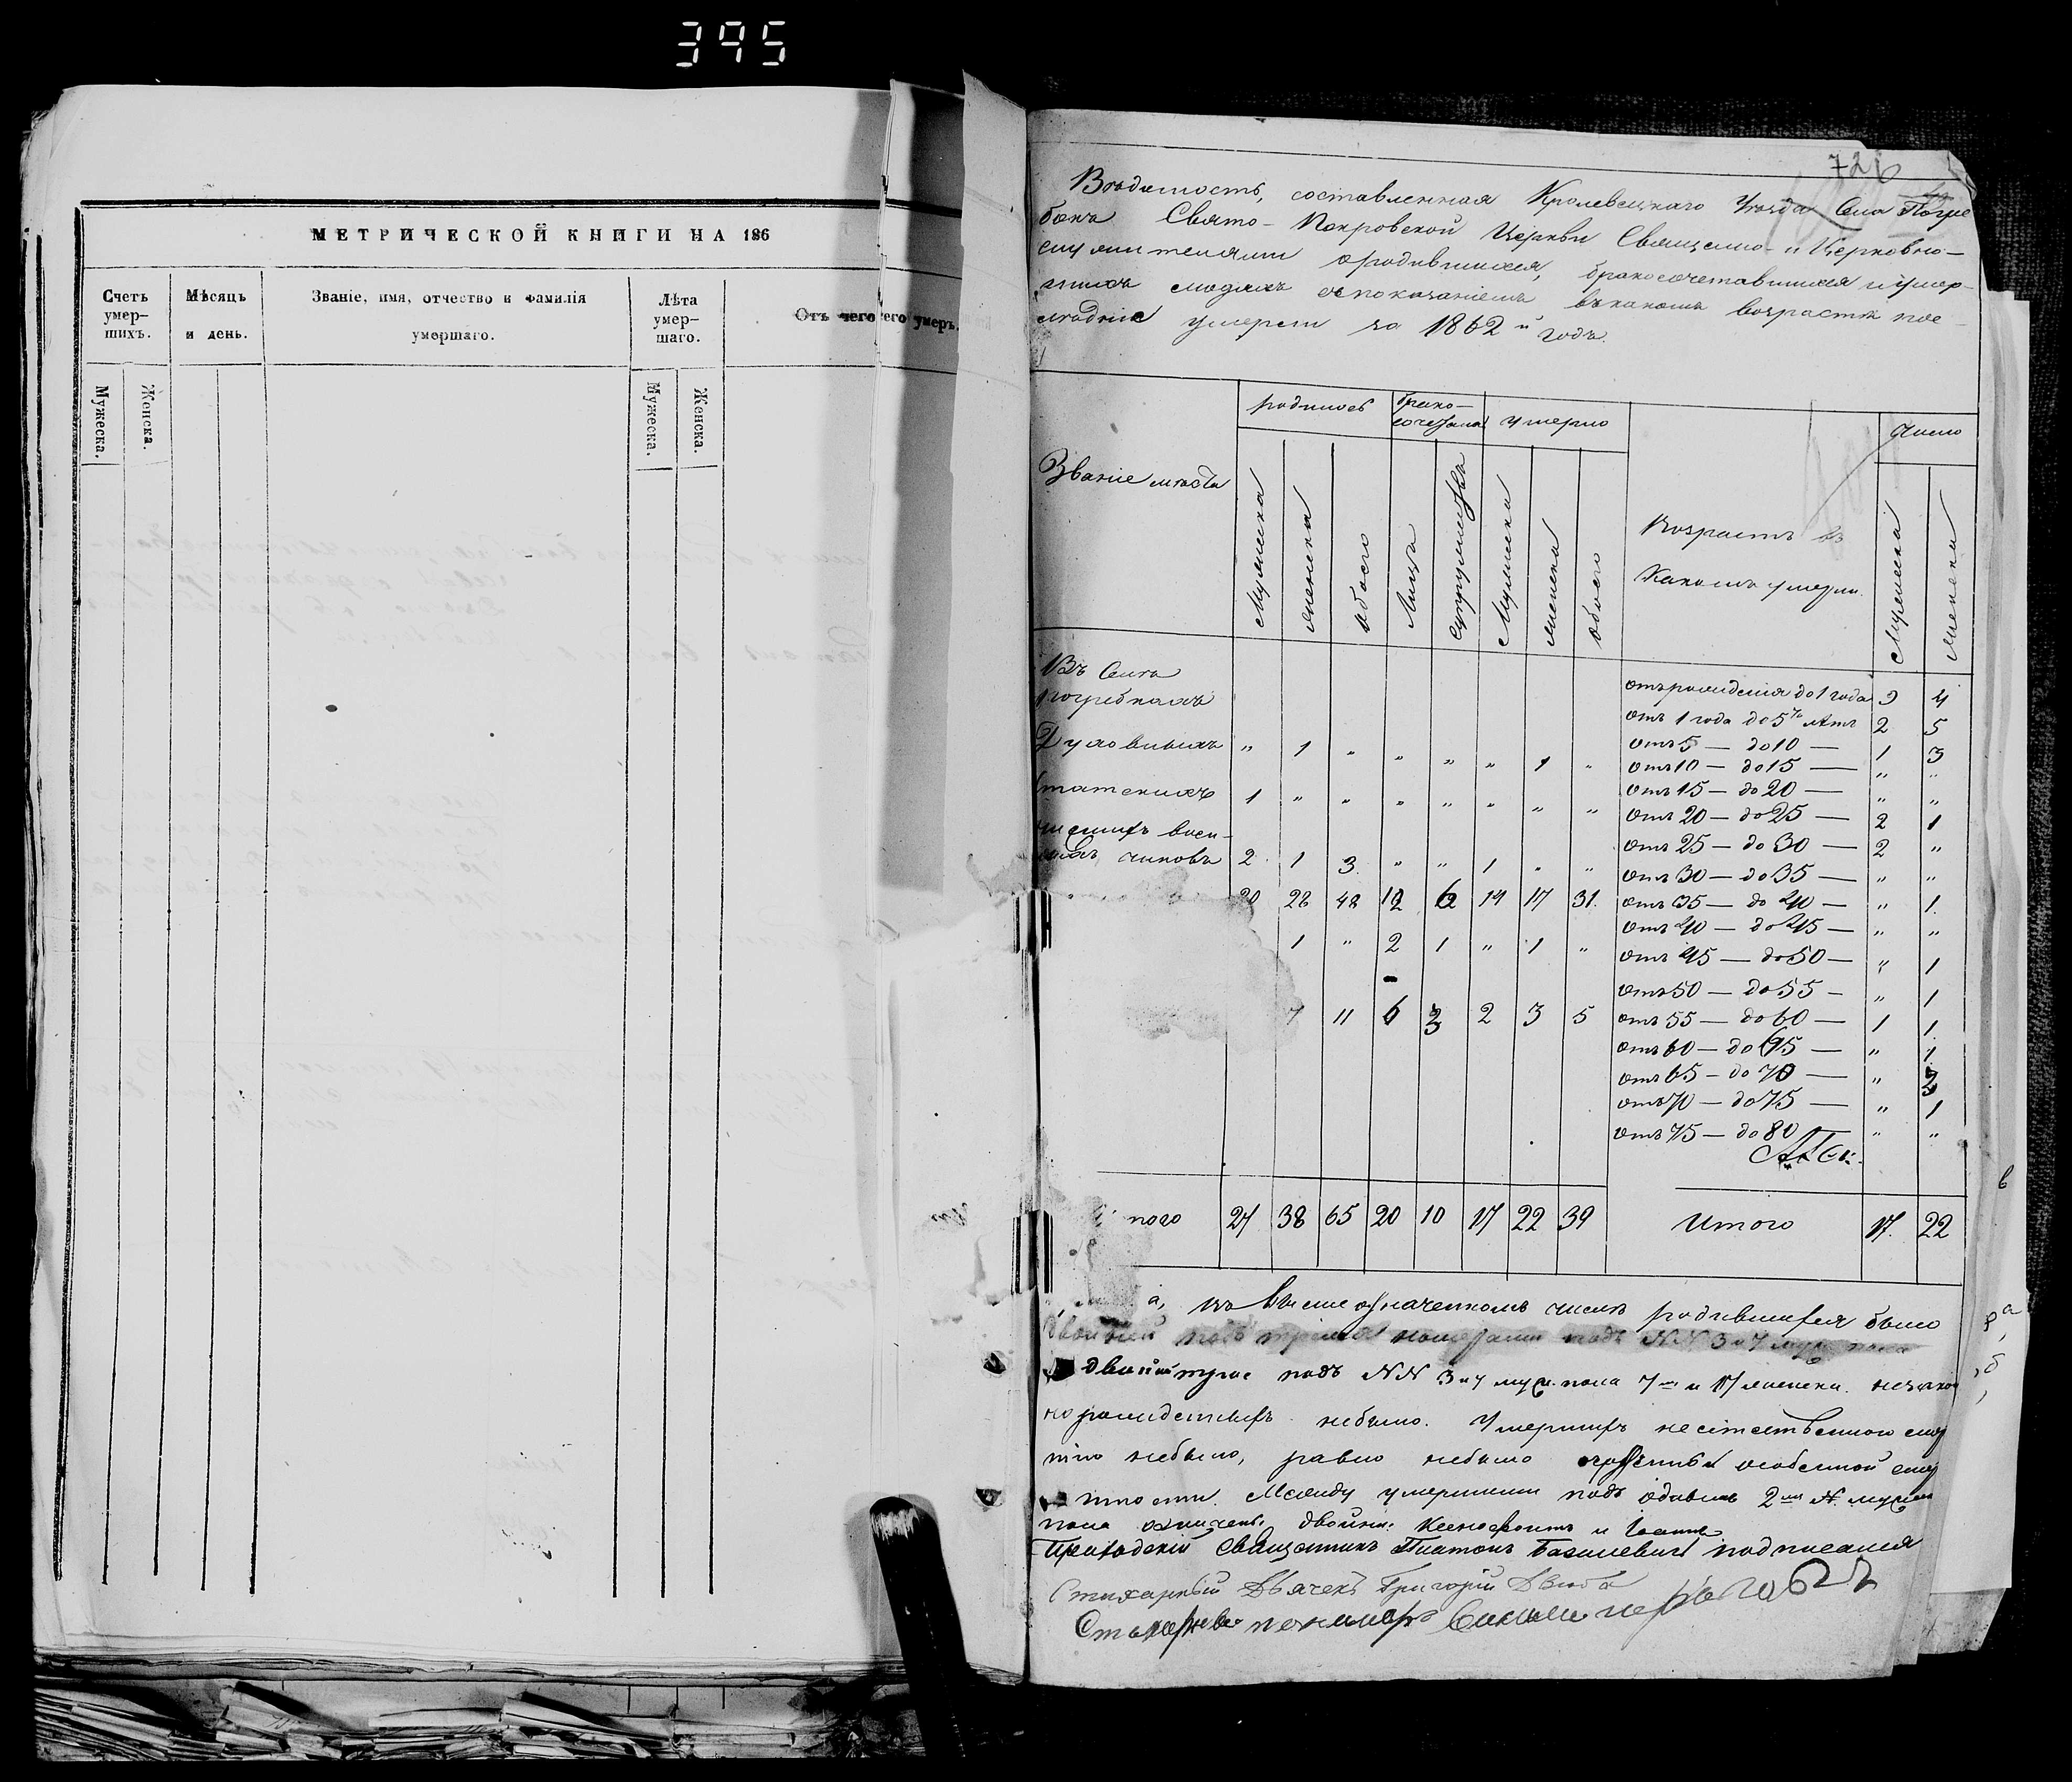 395
МЕТРИЧЕСКОЙ КНИГИ НА 186
Счетъ умер-шихъ.
Мѣсяцъ и день.
Званіе, имя, отчество и фамилія умершаго.
Лѣта умер-шаго.
Отъ чего умеръ.
Мужеска.
Женска.
Мужеска.
Женска.
726
Вѣдомость, составленная Кролевецкаго Уѣзда Села Погре
бокъ Свято-Покровской Церкви Священно- и Церковно-
служителями о родившихся, бракосочетавшихся и умер-
шихъ людяхъ съ показаніемъ въ какомъ возрастѣ пос-
лѣдніе умерли за 1862й годъ.
Званіе мѣста
родилось
брако-сочетано
умерло
Возрастъ въ какомъ умерли.
Число
Мужеска
женска
обоего
Лица
супружествъ
Мужеска
женска
обоего
Мужеска
женска
Въ Селѣ
Погребкахъ
Духовныхъ " 1 " " " " 1 "
Статскихъ 1 " " " " " " "
чиновъ 2 1 3 " " 1 " "
20 28 48 12 6 14 17 31
1 " 2 1 " 1 "
7 11 6 3 2 3 5
отъ рожденія до 1 года 9 4
отъ 1 года до 5ти лѣтъ 2 5
отъ 5 — до 10 — 1 3
отъ 10 — до 15 — " "
отъ 15 — до 20 — " "
отъ 20 — до 25 — 2 1
отъ 25 — до 30 — 2 "
отъ 30 — до 35 — " "
отъ 35 — до 40 — " 1
отъ 40 — до 45 — " "
отъ 45 — до 50 — " 1
отъ 50 — до 55 — " 1
отъ 55 — до 60 — 1 1
отъ 60 — до 65 — " 1
отъ 65 — до 70 — "
отъ 70 — до 75 — " 1
отъ 75 — до 80 " "
того 27 38 65 20 10 17 22 39
Итого 17 22
означенномъ числѣ родившихся было
подъ NN 3 и 7 муж. пола
подъ NN 3 и 7 муж. пола 7мъ и 17 женски. незакон
норожденныхъ небыло. Умершихъ неестественною сме
тію небыло, равно небыло особенной сме
тности. Между умершими подъ однимъ 2мъ N. мужск
пола двойни: Ксенофонтъ и Іоаннъ
Приходскій Священникъ Платонъ Базилевичъ подписался
Стихарный Дьячекъ Григорій
пономарь